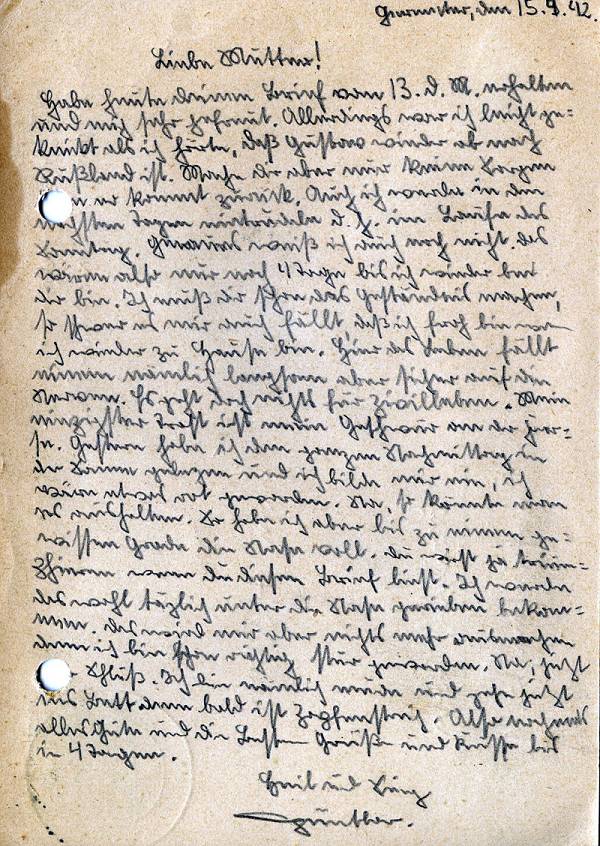 den 15.9.42.
Liebe Mutter!
Habe heute deinen Brief vom 13. d. M. erhalten
und mich sehr gefreut. Allerdings war ich leicht ge=
knickt als ich hörte, daß Gustav wieder ab nach
Rußland ist. Mache dir aber nur keine Sorgen
er kommt zurück. Auch ich werde in den
nächsten Tagen eintrudeln d. h. im Laufe des
Sonntag. Genaues weiß ich auch noch nicht. Das
wären also nur noch 4 Tage bis ich wieder bei
dir bin. Ich muß dir schon das Geständnis machen,
so schwer es mir auch fällt, daß ich froh bin wenn
ich wieder zu Hause bin. Hier das Leben fällt
einem nämlich langsam aber sicher auf die
Nerven. Es geht doch nichts für Zivilleben. Mein
einzigster Trost ist mein Geschwür an der Fer=
se. Gestern habe ich den ganzen Nachmittag in
der Sonne gelegen und ich bilde mir ein, ich
wäre etwas rot geworden. Na, so könnte man
es aushalten. So habe ich aber bis zu einem ge=
wissen Grade die Nase voll. Du wirst ja trium=
phieren wenn du diesen Brief liest. Ich werde
das wohl täglich unter die Nase gerieben bekom=
men. Das wird mir aber nichts mehr ausmachen
denn ich bin schon richtig stur geworden. Na, jetzt
Schluß. Ich bin nämlich müde und gehe jetzt
ins Bett denn bald ist Zapfenstreich. Also nochmals
alles Gute und die besten Grüße und Küsse bis
in 4 Tagen.
Heil und Sieg
Günther.